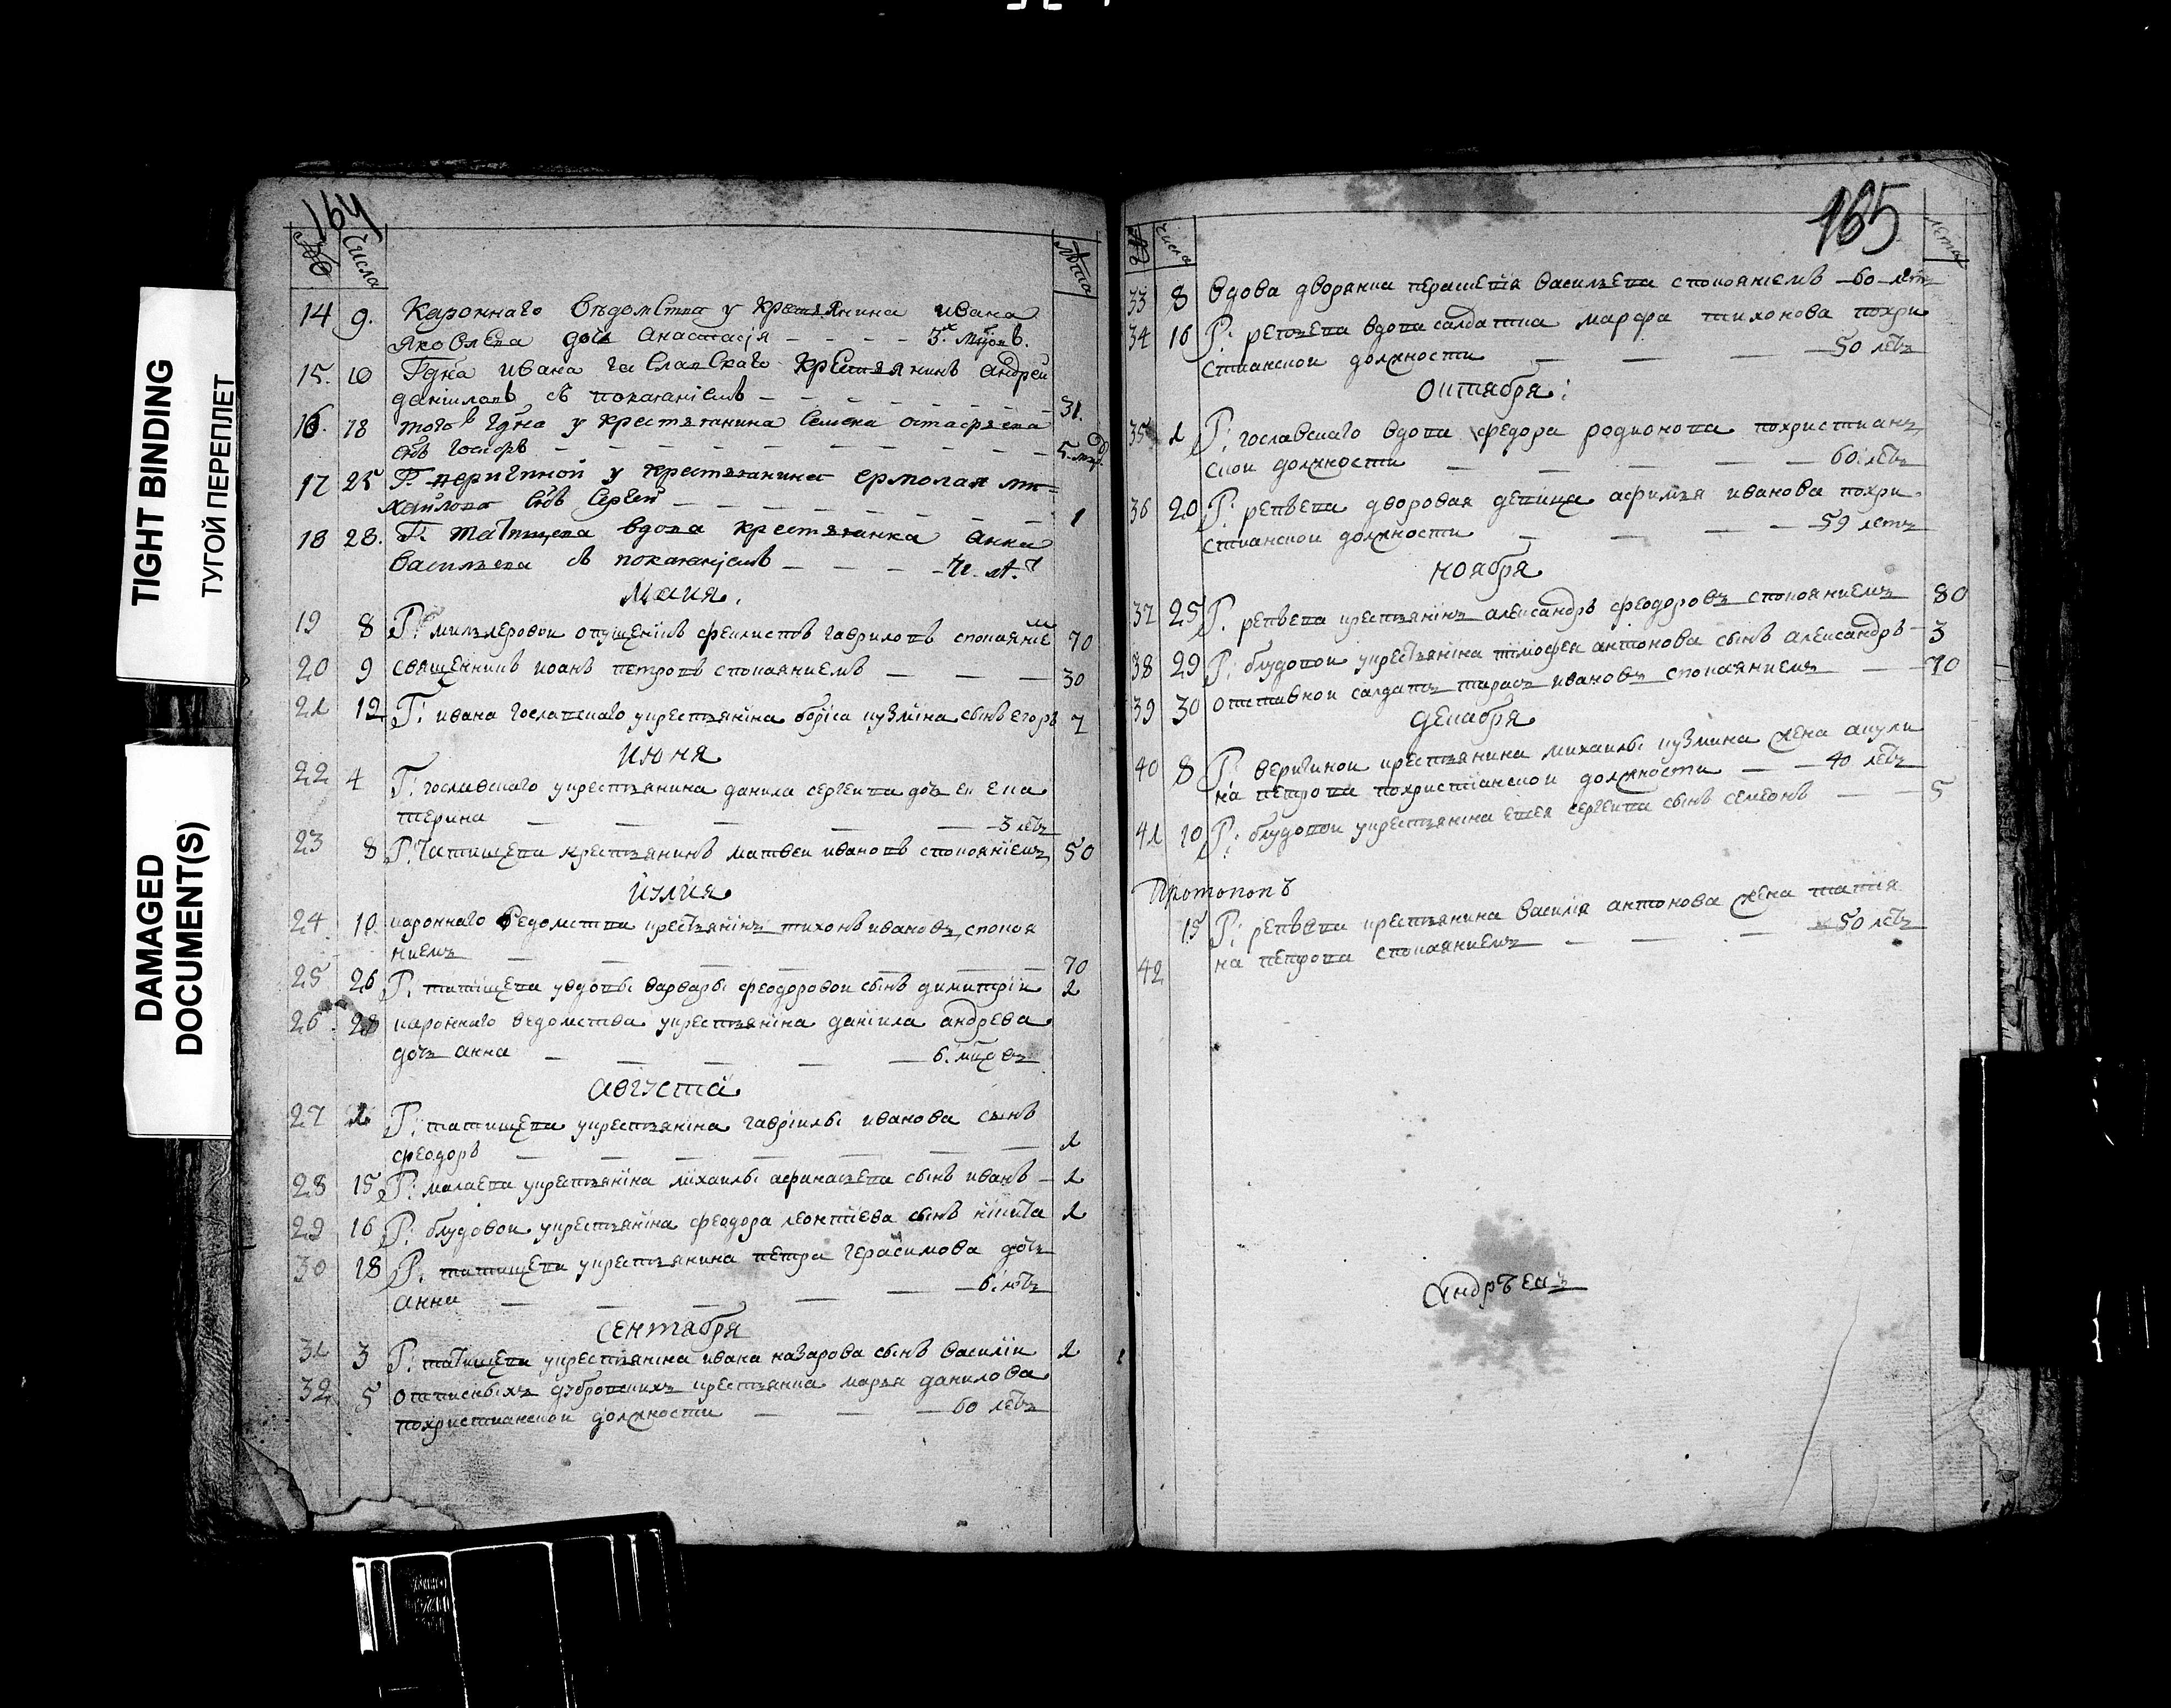 TIGHT BINDING
ТУГОЙ ПЕРЕПЛЕТ
DAMAGED
DOCUMENT(S)
164
Числа
Лѣта
14 9. Каронного вѣдомства у крестьянина ивана
яковлева дочь анастасїя 3.х
15. 10 Гдна ивана гославскаго крестьянинъ андреи
данїиловъ съ покаянїемъ 31.
16. 18 того гдна у крестьянина семена
снъ иосифъ 5.
17 25 Г. веригиной у крестьянина ермолая ми-
хаилова снъ сергеи 1
18 28. Г: татищева вдова крестьянка анна
васильева съ покаянїемъ
маия.
19 8 Г: миллеровои феклистъ гавриловъ спокаянїе м 70
20 9 священникъ иоанъ петровъ спокаяниемъ 30
21 12 Г: ивана гославскаго укрестьянїна борїса кузмїна сынъ егоръ 7
июня
22 4 Г: гославскаго укрестьянина данила сергеива дочь ека
терина 3 летъ
23 8 Г: татищева крестьянинъ матвеи ивановъ спокоянїемъ 50
июлия
24 10 каронного ведомства крестьянїнъ тихонъ ивановъ спокоя
ниемъ 70
25 26 Г: татищева увдовы варвары феодоровои сынъ димитрїи 2
26 28 каронного ведомства укрестьянїна данїила андрева
дочь анна 6. мцовъ
августа
27 2 Г: татищева укрестьянїна гаврїилы иванова сынъ
феодоръ 2
28 15 Г: малаева укрестьянїна мїхаилы афанасьева сынъ иванъ 2
29 16 Г: блудовои укрестьянїна феодора леонтїева сынъ никита 2
30 18 Г: татищева укрестьянина петра герасимова дочь
анна 6. летъ
сентября
31 3 Г: татищева укрестьянїна ивана назарова сынъ василїи 2
32 5 отписныхъ дубровскихъ крестьянка марья данилова
похристианскои должности 60 летъ
165
числа
лета
33 8 вдова дворянка васильева спокоянїемъ 60 летъ
34 16 Г: репьева вдова салдатка марфа тихонова похри
стианскои должности 50 летъ
октября:
35 2 Г: гославскаго вдова федора родионова похристиан
скои должности 60 летъ
36 20 Г: репьева дворовая девица афимья иванова похри
стианскои должности 59 летъ
ноября
37 25 Г. репьева крестьянїнъ александръ феодоровъ спокояниемъ 80
38 29 Г: блудовои укрестьянїна тїмофея антонова сынъ александръ 3
39 30 отставнои салдатъ тарасъ ивановъ спокаяниемъ 70
декабря
40 8 Г: веригинои крестьянина михаилы кузмина жена акули
на петрова похристїанскои должности 40 летъ
41 10 Г: блудовои укрестьянїна сергеива сынъ семеонъ 5
Протопопъ
15 Г: репьева крестьянина василїя антонова жена татїя
42 на петрова спокаяниемъ 50 летъ
Андрѣевъ